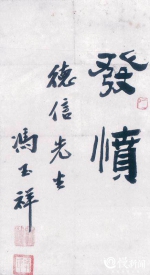 發憤
德信先生
馮玉祥